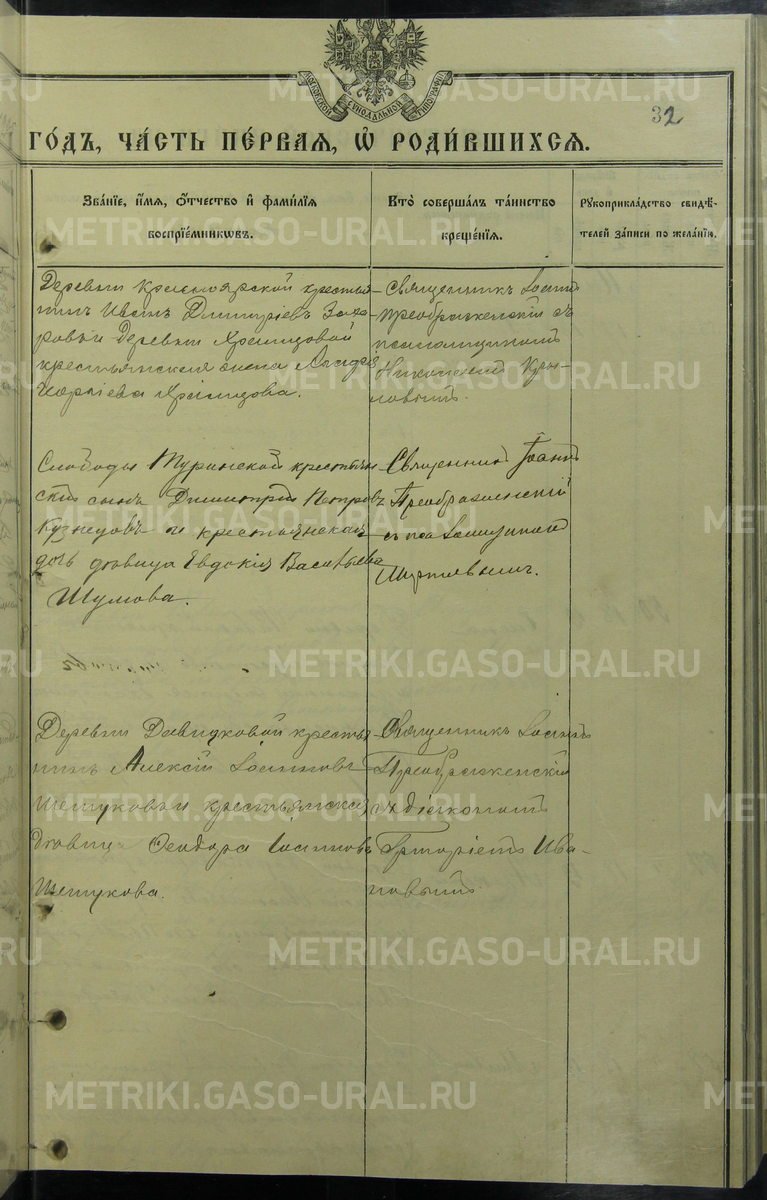 МОСКОВСКОЙ СѴНОДАЛЬНОЙ ТИПОГРАФІИ
32
ГО́ДЪ, ЧА́СТЬ ПЕ́РВАѦ, Ѡ҆ РОДИ́ВШИХСѦ.
Зва́нїе, и҆́мѧ, ѻ҆́тчество и҆ фами́лїѧ
воспрїе́мникѡвъ.
Кто̀ соверша́лъ та́инство
креще́нїѧ.
Рꙋкоприкла́дство свидѣ́-
телей за́писи по жела́нїю.
Деревни Красноярской крестья-
нинъ Иванъ Димитріевъ Заха-
ровъ и деревни Храмцовой
крестьянская жена
Храмцова.
Священникъ Іоаннъ
Преображенскій съ
псаломщикомъ
Кры-
ловымъ.
Слободы Туринской крестьян
скій сынъ Димитрій Петровъ
Кузнецовъ и крестьянская
дочь дѣвица Евдокія Васильева
Шумова.
Священникъ Іоаннъ
Преображенскій
съ псаломщикомъ
Деревни Давыдковой кресть
нинъ Алексій Іоанновъ
Шешуковъ и крестьянская
дѣвица Ѳеодора Іоаннова
Шешукова.
Священникъ Іоаннъ
Преображенскій
съ діакономъ
Григоріемъ Ива-
новымъ
METRIKI.GASO-URAL.RU